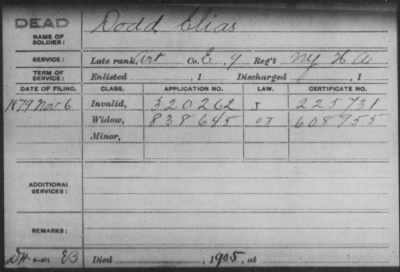 DEAD
NAME OF SOLDIER: Dodd Elias
SERVICE: Late rank, Pvt Co. E, 9 Reg't NY H A
TERM OF SERVICE: Enlisted , 1 Discharged , 1
DATE OF FILING. CLASS. APPLICATION NO. LAW. CERTIFICATE NO.
1879 Nov 6 Invalid, 320262 225731
Widow, 838645 608955
Minor,
ADDITIONAL SERVICES:
REMARKS:
Died , 1905, at